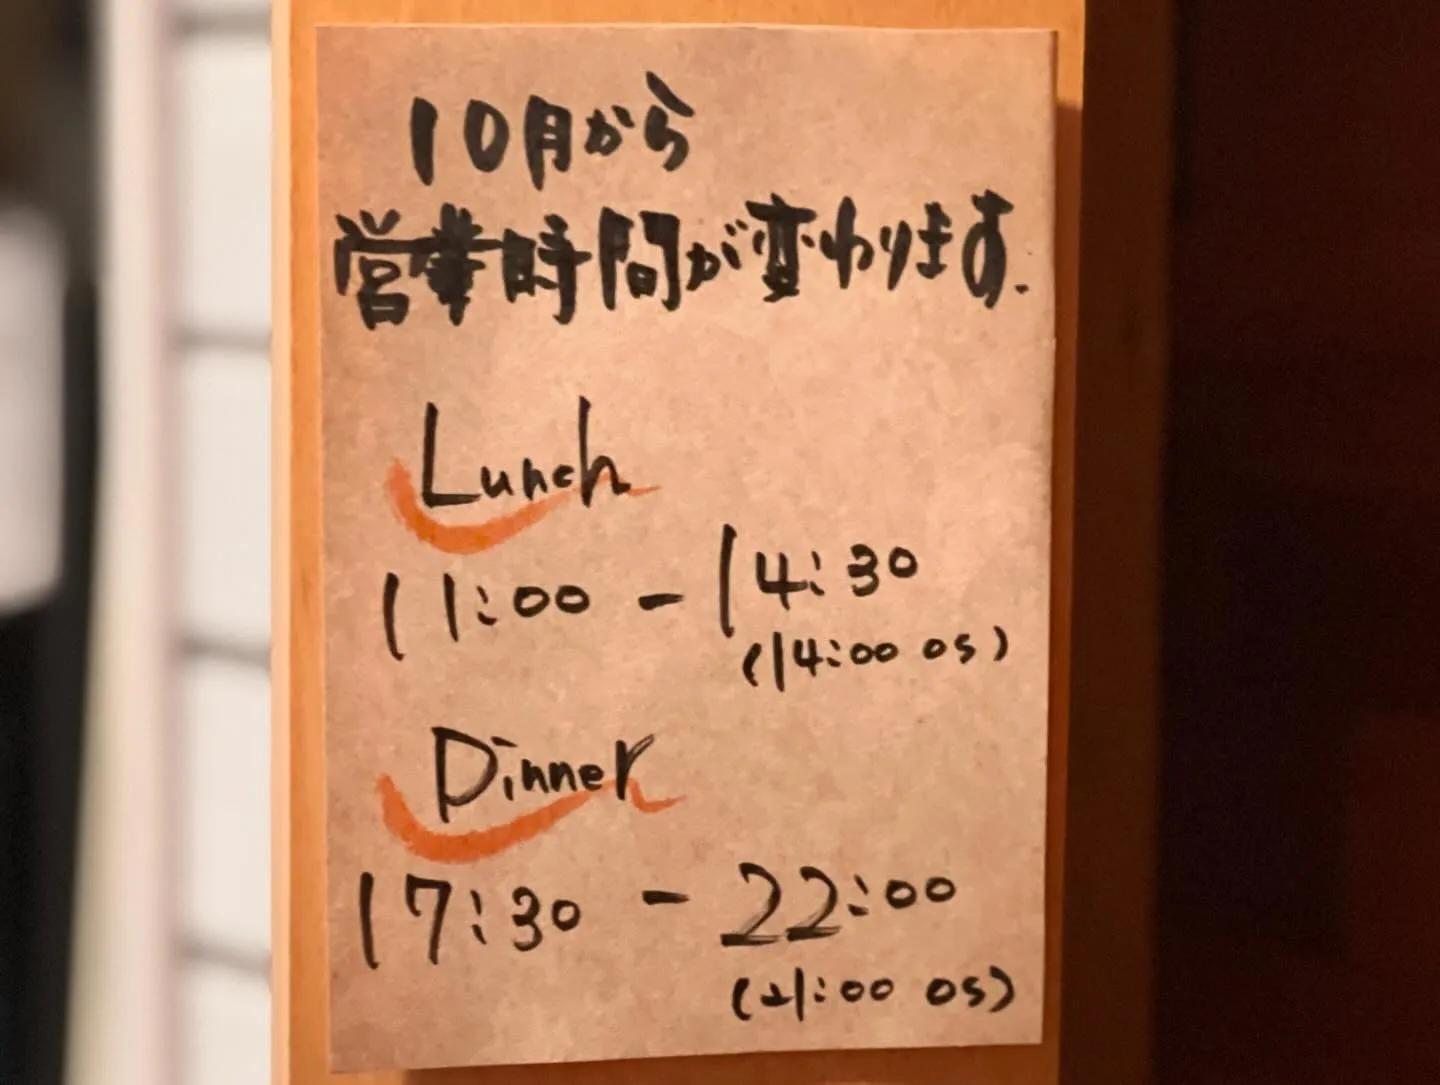 10月から
営業時間が変わります.
Lunch
11:00 - 14:30
(14:00 OS)
Dinner
17:30 - 22:00
(21:00 OS)